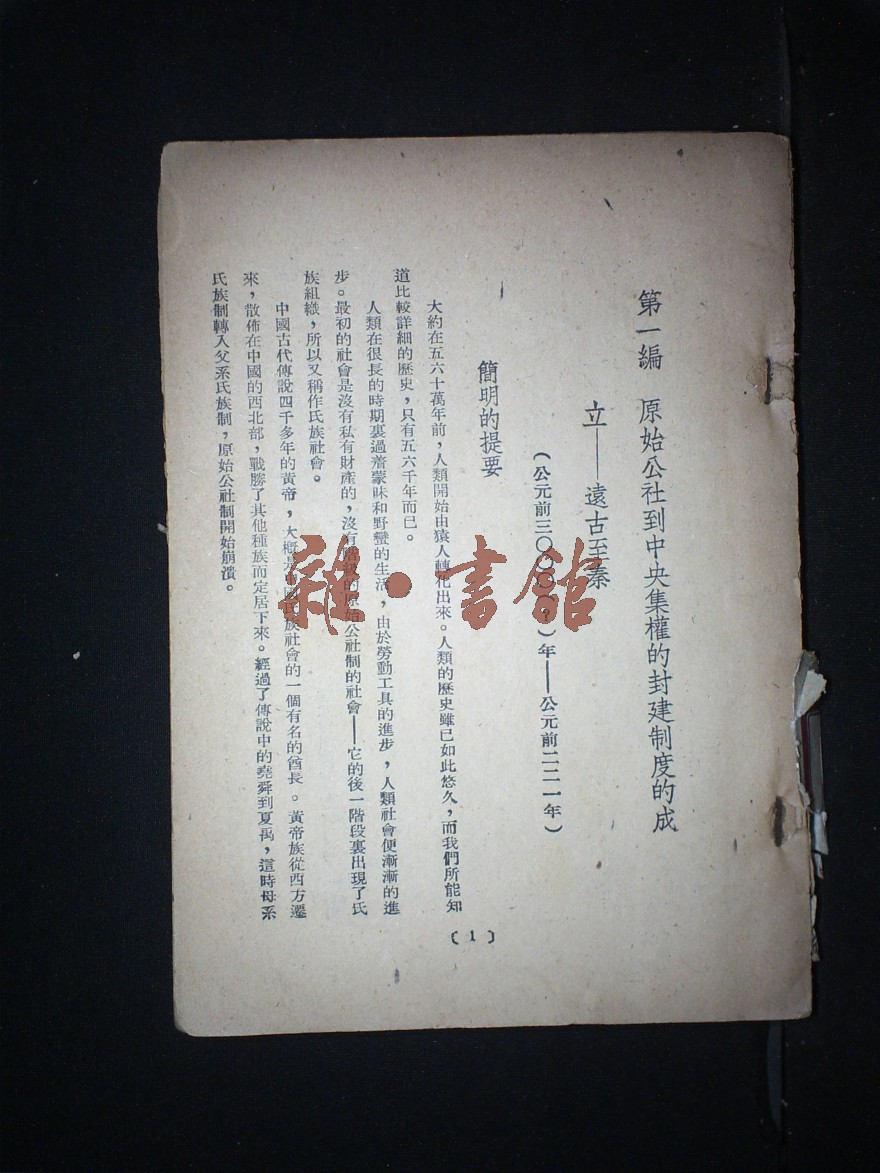 第一編　原始公社到中央集權的封建制度的成
立——遠古至秦
（公元前三〇〇〇（？）年——公元前二二一年）
簡明的提要
大約在五六十萬年前，人類開始由猿人轉化出來。人類的歷史雖已如此悠久，而我們所能知
道比較詳細的歷史，只有五六千年而已。
人類在很長的時期裏過着蒙昧和野蠻的生活，由於勞動工具的進步，人類社會便漸漸的進
步。最初的社會是沒有私有財產的，沒有階級的原始公社制的社會——它的後一階段裏出現了氏
族組織，所以又稱作氏族社會。
中國古代傳說四千多年的黃帝，大概是中國氏族社會的一個有名的酋長。黃帝族從西方遷
來，散佈在中國的西北部，戰勝了其他種族而定居下來。經過了傳說中的堯舜到夏禹，這時母系
氏族制轉入父系氏族制，原始公社制開始崩潰。
（1）
雜·書館